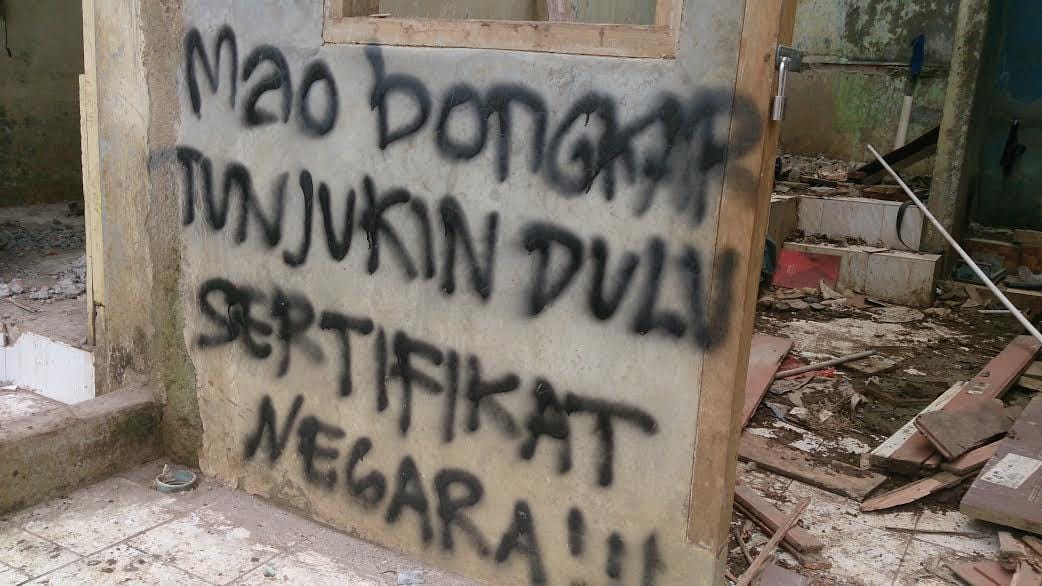 Mao bongKAR
TUNJUKIN DULU
SERTIFIKAT
NEGARA!!!